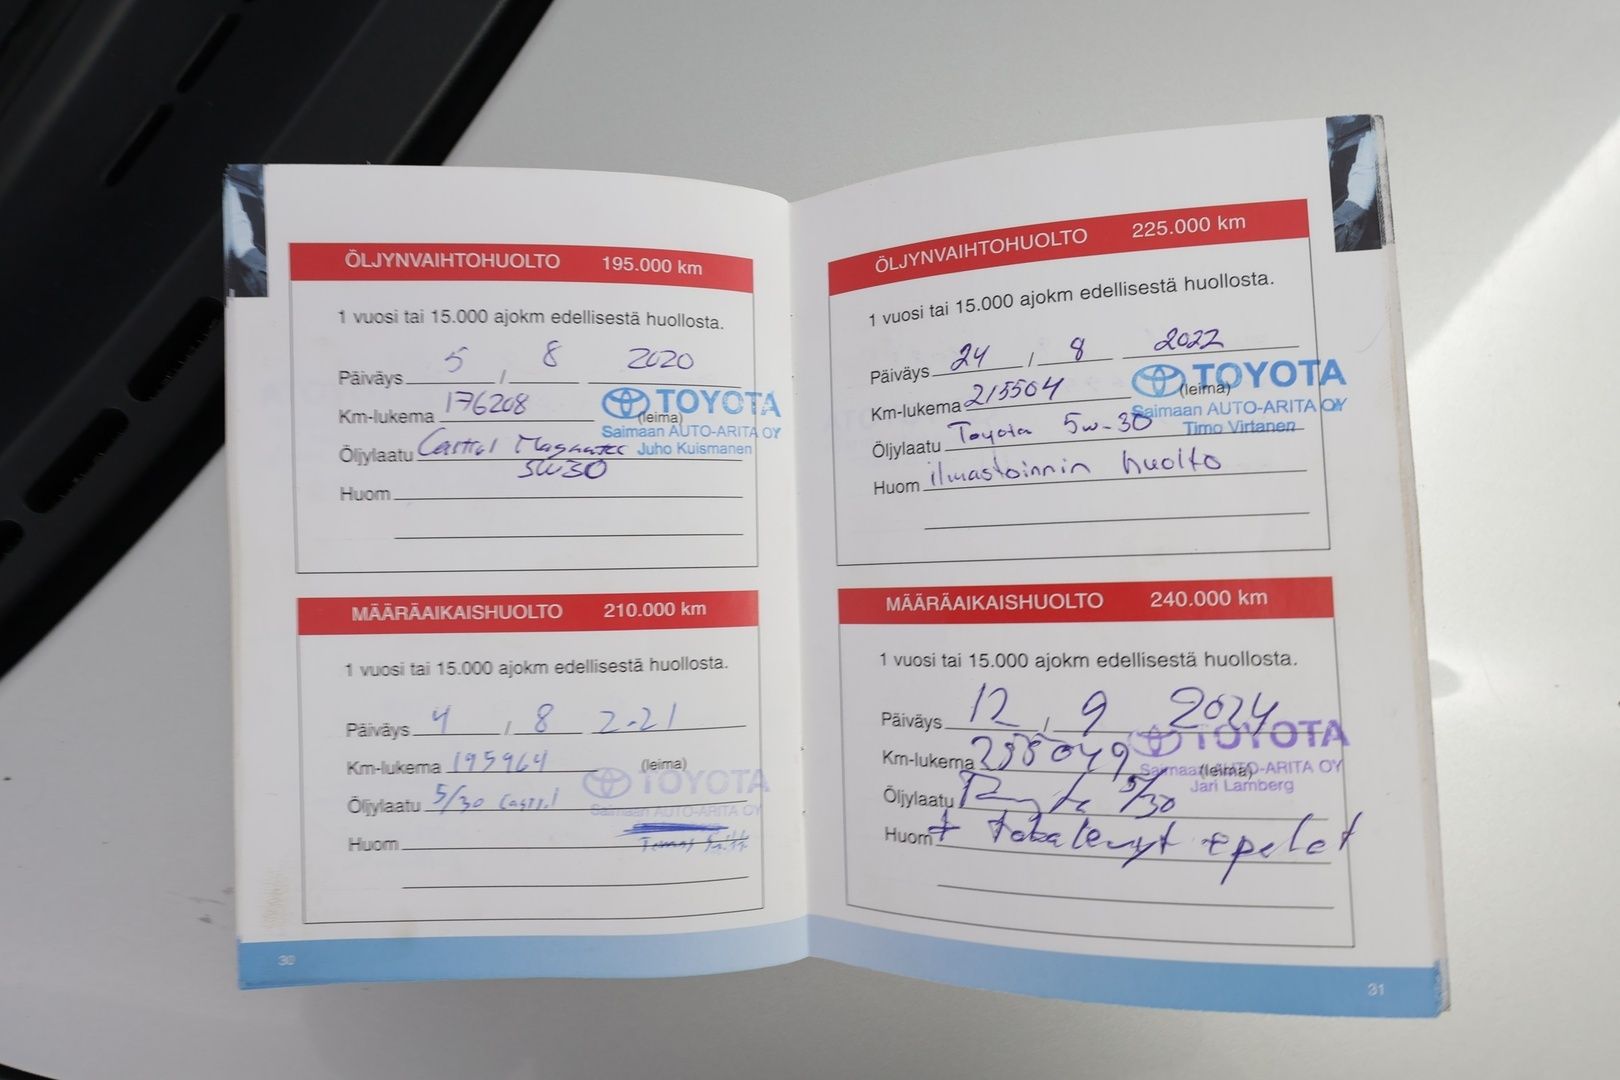 ÖLJYNVAIHTOHUOLTO 195.000 km
1 vuosi tai 15.000 ajokm edellisestä huollosta.
Päiväys 5 / 8 2020
Km-lukema 176208 (leima)
TOYOTA
Saimaan AUTO-ARITA OY
Juho Kuismanen
Öljylaatu Castrol Magnatec
5W30
Huom
MÄÄRÄAIKAISHUOLTO 210.000 km
1 vuosi tai 15.000 ajokm edellisestä huollosta.
Päiväys 4 / 8 2-21
Km-lukema 195964 (leima)
TOYOTA
Saimaan AUTO-ARITA OY
Öljylaatu 5/30 Castrol
Huom
30
ÖLJYNVAIHTOHUOLTO 225.000 km
1 vuosi tai 15.000 ajokm edellisestä huollosta.
Päiväys 24 / 8 2022
Km-lukema 215504 (leima)
TOYOTA
Saimaan AUTO-ARITA OY
Timo Virtanen
Öljylaatu Toyota 5w-30
Huom ilmastoinnin huolto
MÄÄRÄAIKAISHUOLTO 240.000 km
1 vuosi tai 15.000 ajokm edellisestä huollosta.
Päiväys 12 / 9 2024
Km-lukema (leima)
TOYOTA
Saimaan AUTO-ARITA OY
Jari Lamberg
Öljylaatu Toyota 5/30
Huom +
31